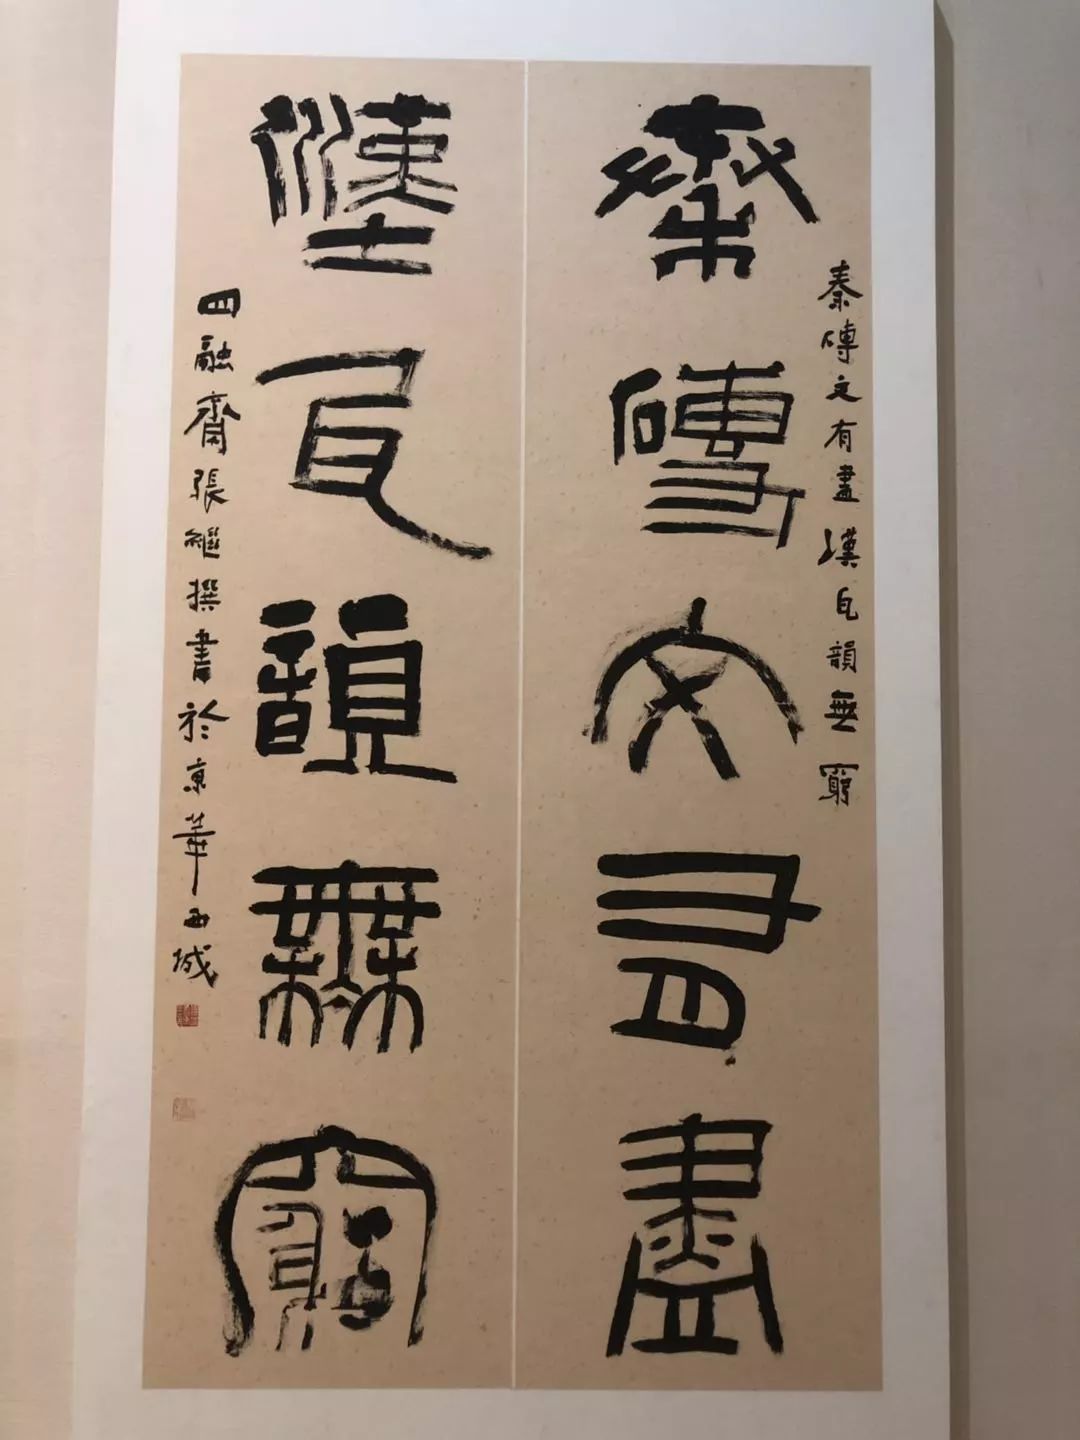 秦磚文有盡
秦磚文有盡漢瓦韻無窮
漢瓦韻無窮
四融齋張繼撰書於京華西城